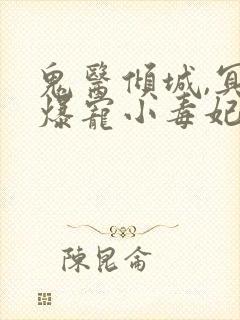 鬼醫傾城,冥
爆寵小毒妃
陳昆侖